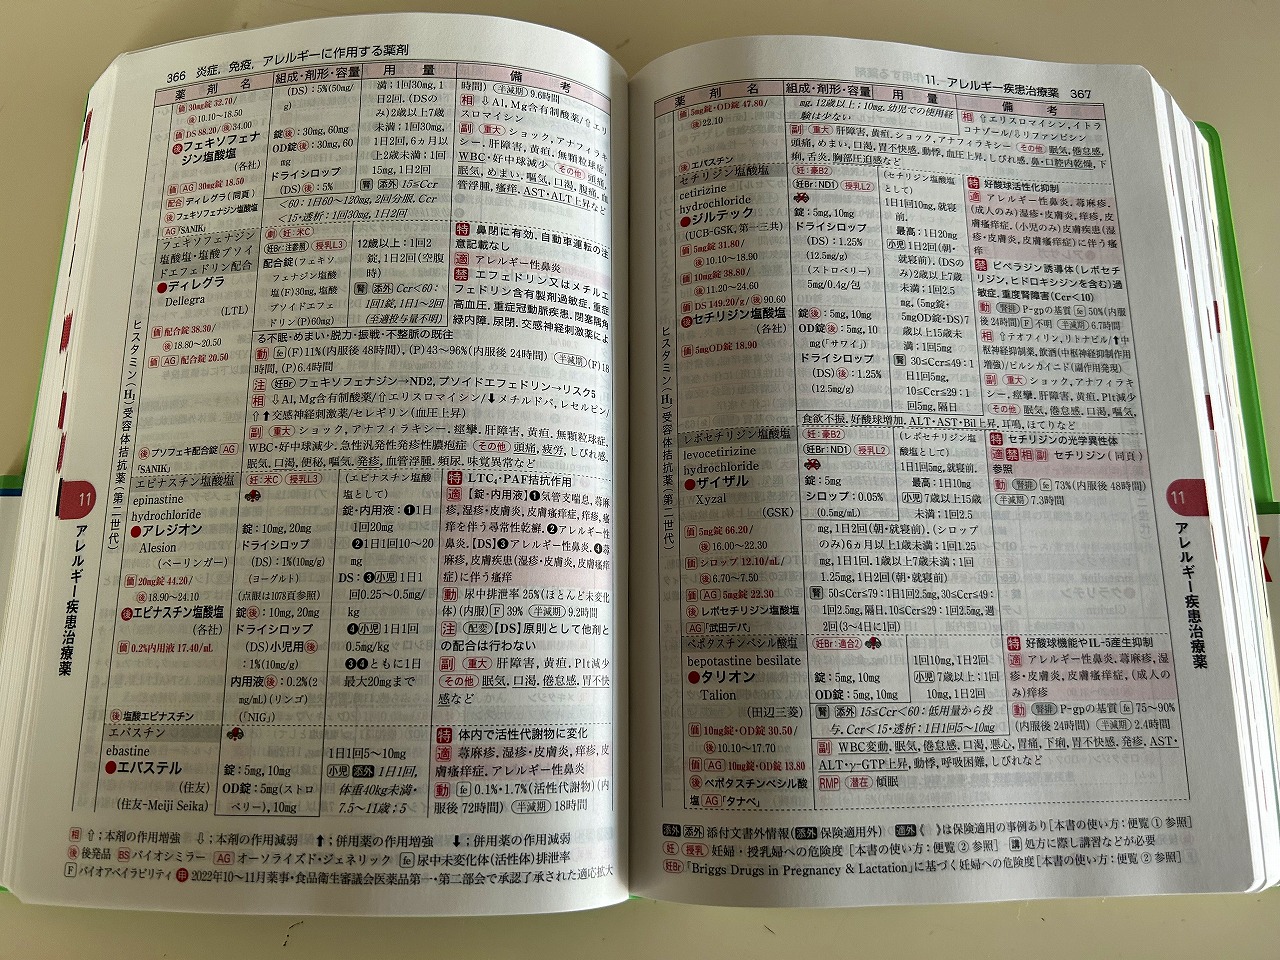 366 炎症，免疫，アレルギーに作用する薬剤
薬 剤 名 組成・剤形・容量 用 量 備 考
価 30mg錠 32.70/
後10.10〜18.50
価 DS 88.20/後34.00
後フェキソフェナ
ジン塩酸塩
(各社)
価 AG 30mg錠 18.50
配合 ディレグラ(同頁)
後フェキソフェナジン塩酸塩
AG「SANIK」
(DS)：5％(50mg/
g)
錠後：30mg, 60mg
OD錠後：30mg, 60
mg
ドライシロップ
(DS)後：5％
満：1回30mg, 1
日2回. (DSの
み)2歳以上7歳
未満：1回30mg,
1日2回, 6ヵ月以
上2歳未満：1回
15mg, 1日2回
腎 添外 15≦Ccr
＜60：1日60〜120mg, 2回分服, Ccr
＜15・透析：1回30mg, 1日2回
時間) 半減期 9.6時間
相 ⇩Al, Mg含有制酸薬/⇧エリ
スロマイシン
副 重大 ショック, アナフィラキ
シー. 肝障害, 黄疸, 無顆粒球症,
WBC・好中球減少 その他 頭痛,
眠気, めまい, 嘔気, 口渇, 腹痛, 血
管浮腫, 瘙痒, AST・ALT上昇など
フェキソフェナジン
塩酸塩・塩酸プソイ
ドエフェドリン配合
●ディレグラ
Dellegra
(LTL)
価 配合錠 38.30/
後18.80〜20.50
価 AG 配合錠 20.50
後 プソフェキ配合錠 AG
「SANIK」
劇 妊：米C
妊Br：注参照 授乳L3
配合錠(フェキソ
フェナジン塩酸
塩(F)30mg, 塩酸
プソイドエフェ
ドリン(P)60mg)
12歳以上：1回2
錠, 1日2回(空腹
時)
腎 添外 Ccr＜60：
1回1錠, 1日1〜2回
(至適投与量不明)
特 鼻閉に有効. 自動車運転の注
意記載なし
適 アレルギー性鼻炎
禁 エフェドリン又はメチルエ
フェドリン含有製剤過敏症. 重症
高血圧. 重症冠動脈疾患. 閉塞隅角
緑内障. 尿閉. 交感神経刺激薬によ
る不眠・めまい・脱力・振戦・不整脈の既往
動 fe (F)11％(内服後48時間), (P)43〜96％(内服後24時間) 半減期 (F)18
時間, (P)6.4時間
注 妊Br フェキソフェナジン→ND2, プソイドエフェドリン→リスク5
相 ⇩Al, Mg含有制酸薬/⇧エリスロマイシン/⬇メチルドパ, レセルピン/
⇧⬆交感神経刺激薬/セレギリン(血圧上昇)
副 重大 ショック, アナフィラキシー. 痙攣. 肝障害, 黄疸, 無顆粒球症,
WBC・好中球減少. 急性汎発性発疹性膿疱症 その他 頭痛, 疲労, しびれ感,
眠気, 口渇, 便秘, 嘔気, 発疹, 血管浮腫, 頻尿, 味覚異常など
エピナスチン塩酸塩
epinastine
hydrochloride
●アレジオン
Alesion
(ベーリンガー)
価 20mg錠 44.20/
後18.90〜24.10
後エピナスチン塩酸塩
(各社)
価 0.2％内用液 17.40/mL
後 塩酸エピナスチン
妊：米C 授乳L3
錠：10mg, 20mg
ドライシロップ
(DS)：1％(10mg/g)
(ヨーグルト)
(点眼は1078頁参照)
錠後：10mg, 20mg
ドライシロップ
(DS)小児用後
：1％(10mg/g)
内用液後：0.2％(2
mg/mL)(リンゴ)
(「NIG」)
(エピナスチン塩酸
塩として)
錠・内用液：❶1日
1回20mg
❷1日1回10〜20
mg
DS：❸小児 1日1
回0.25〜0.5mg/
kg
❹小児 1日1回
0.5mg/kg
❸❹ともに1日
最大20mgまで
特 LTC₄・PAF拮抗作用
適【錠・内用液】❶気管支喘息, 蕁麻
疹, 湿疹・皮膚炎, 皮膚瘙痒症, 痒疹, 瘙
痒を伴う尋常性乾癬. ❷アレルギー性
鼻炎.【DS】❸アレルギー性鼻炎. ❹蕁
麻疹, 皮膚疾患(湿疹・皮膚炎, 皮膚瘙痒
症)に伴う瘙痒
動 尿中排泄率25％(ほとんど未変化
体)(内服) F 39％ 半減期 9.2時間
注 配変【DS】原則として他剤と
の配合は行わない
副 重大 肝障害, 黄疸, Plt減少
その他 眠気, 口渇, 倦怠感, 胃不快
感など
エバスチン
ebastine
●エバステル
(住友)
(住友-Meiji Seika)
錠：5mg, 10mg
OD錠：5mg(ストロ
ベリー), 10mg
1日1回5〜10mg
小児 添外 1日1回,
体重40kg未満・
7.5〜11歳：5
特 体内で活性代謝物に変化
適 蕁麻疹, 湿疹・皮膚炎, 痒疹, 皮
膚瘙痒症, アレルギー性鼻炎
動 fe 0.1％・1.7％(活性代謝物)(内
服後72時間) 半減期 18時間
ヒスタミン(H₁)受容体拮抗薬(第二世代)
11
アレルギー疾患治療薬
相 ⇧：本剤の作用増強 ⇩：本剤の作用減弱 ⬆：併用薬の作用増強 ⬇：併用薬の作用減弱
後 後発品 BS バイオシミラー AG オーソライズド・ジェネリック fe 尿中未変化体(活性体)排泄率
F バイオアベイラビリティ 申 2022年10〜11月薬事・食品衛生審議会医薬品第一・第二部会で承認了承された適応拡大
11．アレルギー疾患治療薬 367
薬 剤 名 組成・剤形・容量 用 量 備 考
価 5mg錠・OD錠 47.80/
後22.10
後 エバスチン
mg, 12歳以上：10mg, 幼児での使用経
験は少ない
相 ⇧エリスロマイシン, イトラ
コナゾール/⇩リファンピシン
副 重大 ショック, アナフィラキシー. 肝障害, 黄疸 その他 眠気, 倦怠感,
頭痛, めまい, 口渇, 胃不快感, 動悸, 血圧上昇, しびれ感, 鼻・口腔内乾燥, 下
痢, 舌炎, 胸部圧迫感など
セチリジン塩酸塩
cetirizine
hydrochloride
●ジルテック
(UCB-GSK, 第一三共)
価 5mg錠 31.80/
後10.10〜18.90
価 10mg錠 38.80/
後11.20〜24.60
価 DS 149.20/g/後90.60
後セチリジン塩酸塩
(各社)
価 5mgOD錠 18.90
妊：豪B2
妊Br：ND1 授乳L2
錠：5mg, 10mg
ドライシロップ
(DS)：1.25％
(12.5mg/g)
(ストロベリー)
5mg/0.4g/包
錠後：5mg, 10mg
OD錠後：5mg, 10
mg(「サワイ」)
ドライシロップ
(DS)後：1.25％
(12.5mg/g)
(セチリジン塩酸塩
として)
1日1回10mg, 就寝
前.
最高：1日20mg
小児 1日2回(朝・
就寝前). (DSの
み)2歳以上7歳
未満：1回2.5
mg, (5mg錠・
5mgOD錠・DS)7
歳以上15歳未
満：1回5mg
腎 30≦Ccr≦49：1
日1回5mg,
10≦Ccr≦29：1
回5mg, 隔日
特 好酸球活性化抑制
適 アレルギー性鼻炎, 蕁麻疹,
(成人のみ)湿疹・皮膚炎, 痒疹, 皮
膚瘙痒症, (小児のみ)皮膚疾患(湿
疹・皮膚炎, 皮膚瘙痒症)に伴う瘙
痒
禁 ピペラジン誘導体(レボセチ
リジン, ヒドロキシジンを含む)過
敏症, 重度腎障害(Ccr＜10)
動 腎排 P-gpの基質 fe 50％(内服
後24時間) F 不明 半減期 6.7時間
相 ⇧テオフィリン, リトナビル/⬆中
枢神経抑制薬, 飲酒(中枢神経抑制作用
増強)/ピルシカイニド(副作用発現)
副 重大 ショック, アナフィラキ
シー, 痙攣, 肝障害, 黄疸, Plt減少
その他 眠気, 倦怠感, 口渇, 嘔気,
食欲不振, 好酸球増加, ALT・AST・Bil上昇, 耳鳴, ほてりなど
レボセチリジン塩酸塩
levocetirizine
hydrochloride
●ザイザル
Xyzal
(GSK)
価 5mg錠 66.20/
後16.00〜22.30
価 シロップ 12.10/mL/
後6.70〜7.50
価 AG 5mg錠 22.30
後 レボセチリジン塩酸塩
AG「武田テバ」
妊：豪B2
妊Br：ND1 授乳L2
錠：5mg
シロップ：0.05％
(0.5mg/mL)
(レボセチリジン塩
酸塩として)
1日1回5mg, 就寝前.
最高：1日10mg
小児 7歳以上15歳
未満：1回2.5
mg, 1日2回(朝・就寝前). (シロップ
のみ)6ヵ月以上1歳未満：1回1.25
mg, 1日1回. 1歳以上7歳未満：1回
1.25mg, 1日2回(朝・就寝前)
腎 50≦Ccr≦79：1日1回2.5mg, 30≦Ccr≦49：
1回2.5mg, 隔日, 10≦Ccr≦29：1回2.5mg, 週
2回(3〜4日に1回)
特 セチリジンの光学異性体
適 禁 相 副 セチリジン(同頁)
参照
動 腎排 fe 73％(内服後48時間)
半減期 7.3時間
ベポタスチンベシル酸塩
bepotastine besilate
●タリオン
Talion
(田辺三菱)
価 10mg錠・OD錠 30.50/
後10.10〜17.70
価 AG 10mg錠・OD錠 13.80
後 ベポタスチンベシル酸
塩 AG「タナベ」
妊Br：適合2
錠：5mg, 10mg
OD錠：5mg, 10mg
1回10mg, 1日2回
小児 7歳以上：1回
10mg, 1日2回
腎 添外 15≦Ccr＜60：低用量から投
与. Ccr＜15・透析：1日1回5〜10mg
特 好酸球機能やIL-5産生抑制
適 アレルギー性鼻炎, 蕁麻疹, 湿
疹・皮膚炎, 皮膚瘙痒症, (成人の
み)痒疹
動 腎排 P-gpの基質 fe 75〜90％
(内服後24時間) 半減期 2.4時間
副 WBC変動, 眠気, 倦怠感, 口渇, 悪心, 胃痛, 下痢, 胃不快感, 発疹, AST・
ALT・γ-GTP上昇, 動悸, 呼吸困難, しびれなど
RMP 潜在 傾眠
ヒスタミン(H₁)受容体拮抗薬(第二世代)
11
アレルギー疾患治療薬
添外 添外 添付文書外情報(添外 保険適用外) 適外《 》は保険適用の事例あり［本書の使い方：便覧①参照］
妊 授乳 妊婦・授乳婦への危険度［本書の使い方：便覧②参照］ 講 処方に際し講習などが必要
妊Br「Briggs Drugs in Pregnancy & Lactation」に基づく妊婦への危険度［本書の使い方：便覧②参照］